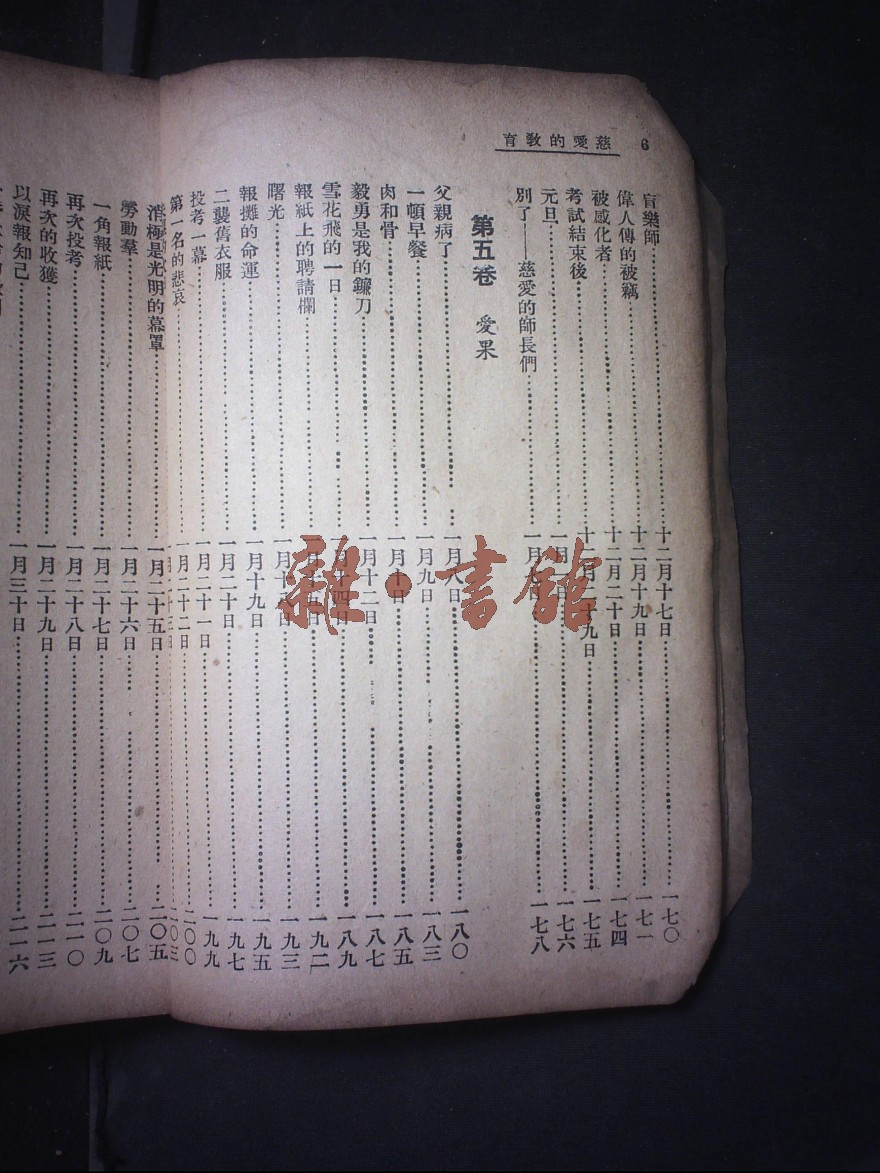 6 慈愛的教育
盲樂師……十二月十七日……一七〇
偉人傳的被竊……十二月十九日……一七一
被感化者……十二月二十日……一七四
考試結束後……十二月二十九日……一七五
元旦……一月日……一七六
別了——慈愛的師長們……一月日……一七八
第五卷 愛果
父親病了……一月八日……一八〇
一頓早餐……一月九日……一八三
肉和骨……一月十日……一八五
毅勇是我的鐮刀……一月十二日……一八七
雪花飛的一日……一月十四日……一八九
報紙上的聘請欄……一月十日……一九二
曙光……一月十日……一九三
報攤的命運……一月十九日……一九五
二襲舊衣服……一月二十日……一九七
投考一幕……一月二十一日……一九九
第一名的悲哀……一月二十二日……二〇〇
二十三日……二〇三
消極是光明的幕罩……一月二十五日……二〇五
勞動羣……一月二十六日……二〇七
一角報紙……一月二十七日……二〇九
再次投考……一月二十八日……二一〇
再次的收獲……一月二十九日……二一三
以淚報知己……一月三十日……二一六
雜·書館